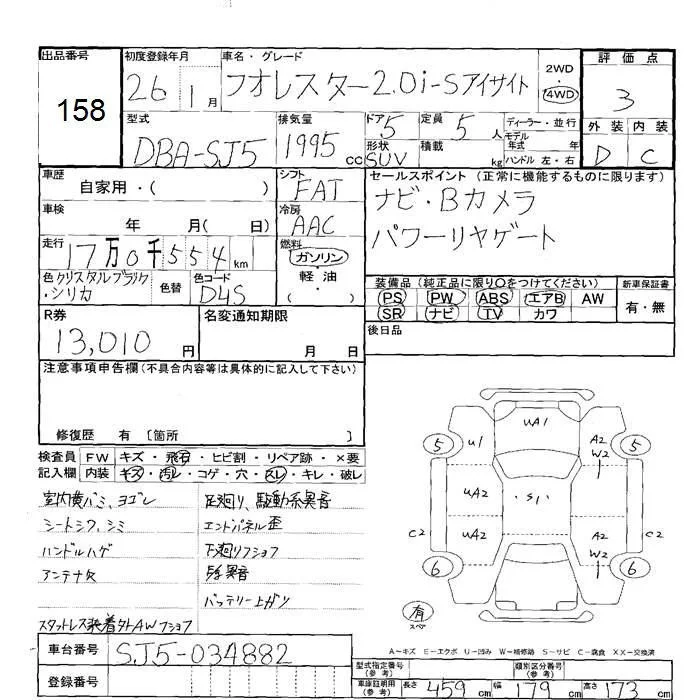 出品番号
158
初度登録年月
26 1月
車名・グレード
フオレスター2.0i-Sアイサイト
2WD
・
4WD
評価点
3
外装 内装
D C
型式
DBA-SJ5
排気量
1995cc
ドア
5
形状
SUV
定員
5人
積載
kg
ディーラー・並行
モデル
年式 年
ハンドル 左・右
車歴
自家用・( )
シフト
FAT
車検
年 月( 日)
冷房
AAC
走行
17万0千554km
燃料
ガソリン
軽油
( ・ )
色 クリスタルブラック・シリカ
色替
色コード
D4S
セールスポイント (正常に機能するものに限ります)
ナビ・Bカメラ
パワーリヤゲート
装備品 (純正品に限り○をつけてください)
PS PW ABS エアB AW
SR ナビ TV カワ
新車保証書
有・無
後日品
R券
13,010円
名変通知期限
月 日
注意事項申告欄 (不具合内容等は具体的に記入して下さい)
修復歴 有 〔箇所 〕
検査員 FW キズ・飛石・ヒビ割・リペア跡・×要
記入欄 内装 キズ・汚レ・コゲ・穴・スレ・キレ・破レ
室内機バミ、ヨゴレ
シートシワ、シミ
ハンドルハゲ
アンテナ欠
スタットレス装着外AWフショク
足廻り、駆動系異音
エンドパネル歪
下廻りフショク
異音
バッテリー上ガリ
5 U1 UA1 A2 W2 5
UA2 ・S1・
C2 UA2 A2 W2 1 C2
6 6
有
スペア
A〜キズ E〜エクボ U〜凹み W〜補修跡 S〜サビ C〜腐食 XX〜交換済
車台番号
SJ5-034882
登録番号
型式指定番号
(参考)
類別区分番号
(参考)
車庫証明用
(参考)
長さ 459cm 幅 179cm 高さ 173cm